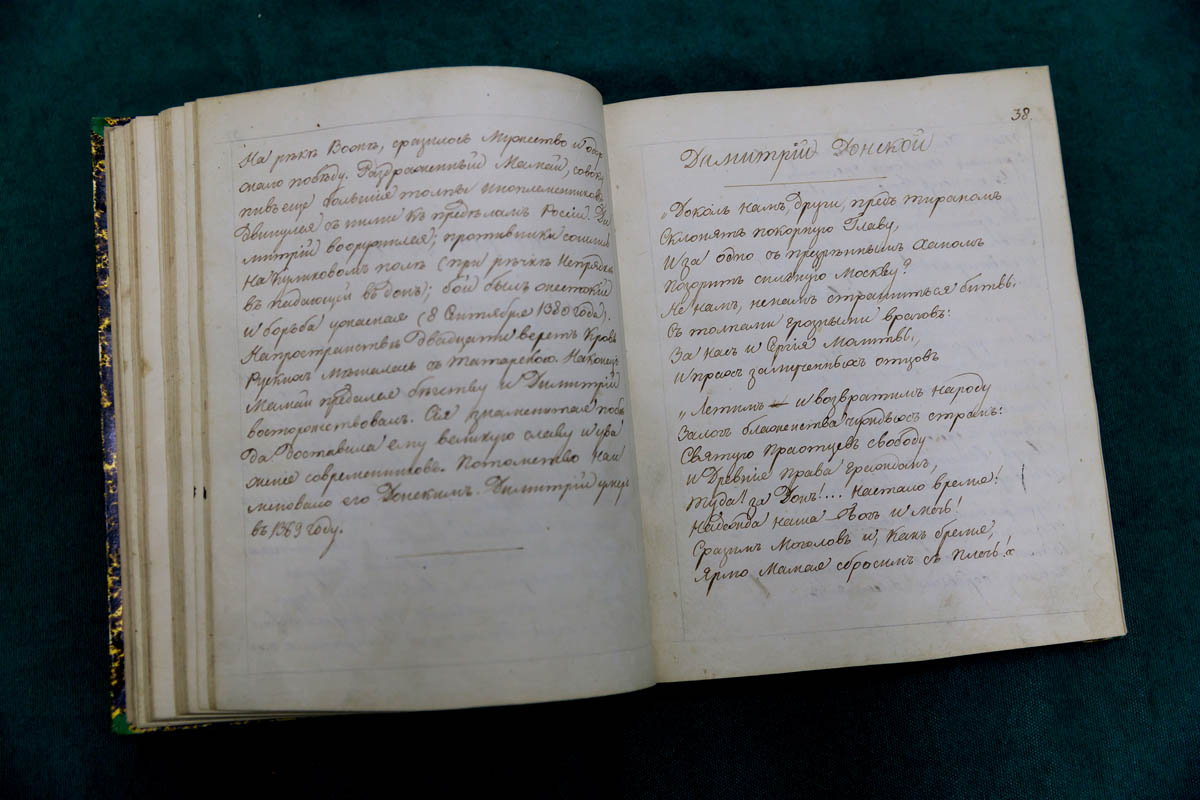 На рѣкѣ Вопѣ, сразилось Мужество и одер
жало побѣду. Раздраженный Мамай, совоку
пивъ еще большія толпы иноплеменниковъ
двинулся съ ними къ предѣламъ Росіи. Ди
митрій вооружился; противники сошлись
на Куликовомъ полѣ (при рѣчкѣ Непрядвѣ
въ падающий въ Донъ); бой былъ жестокій
и борьба ужасная (8 Сентября 1380 года).
На пространствѣ двадцати верстъ кровь
Рускихъ мѣшалась съ Татарскою. Наконецъ
Мамай предался бѣгству и Димитрій
восторжествовалъ. Сія знаменитая побѣ
да доставила ему великую славу и ува
женіе современниковъ. Потомство наи
меновало его Донскимъ. Димитрій умеръ
въ 1389 году.
38.
Димитрій Донской
„Доколь намъ, други, предъ тираномъ
Склонять покорную Главу,
И за одно съ презрѣннымъ Ханомъ
Позорить сильную Москву?
Не намъ, не намъ страшиться битвы
Съ толпами грозными враговъ:
За насъ и Сергія Молитвы,
И прахъ замученныхъ отцовъ
„Летимъ и возвратимъ народу
Залогъ блаженства чуждыхъ странъ:
Святую Праотцевъ свободу
И Древніе права гражданъ,
Туда! за Донъ!... Настало время!
Надежда наша Богъ и мечь!
Сразимъ Моголовъ и, какъ бремя,
Ярмо Мамая сбросимъ съ плечь!